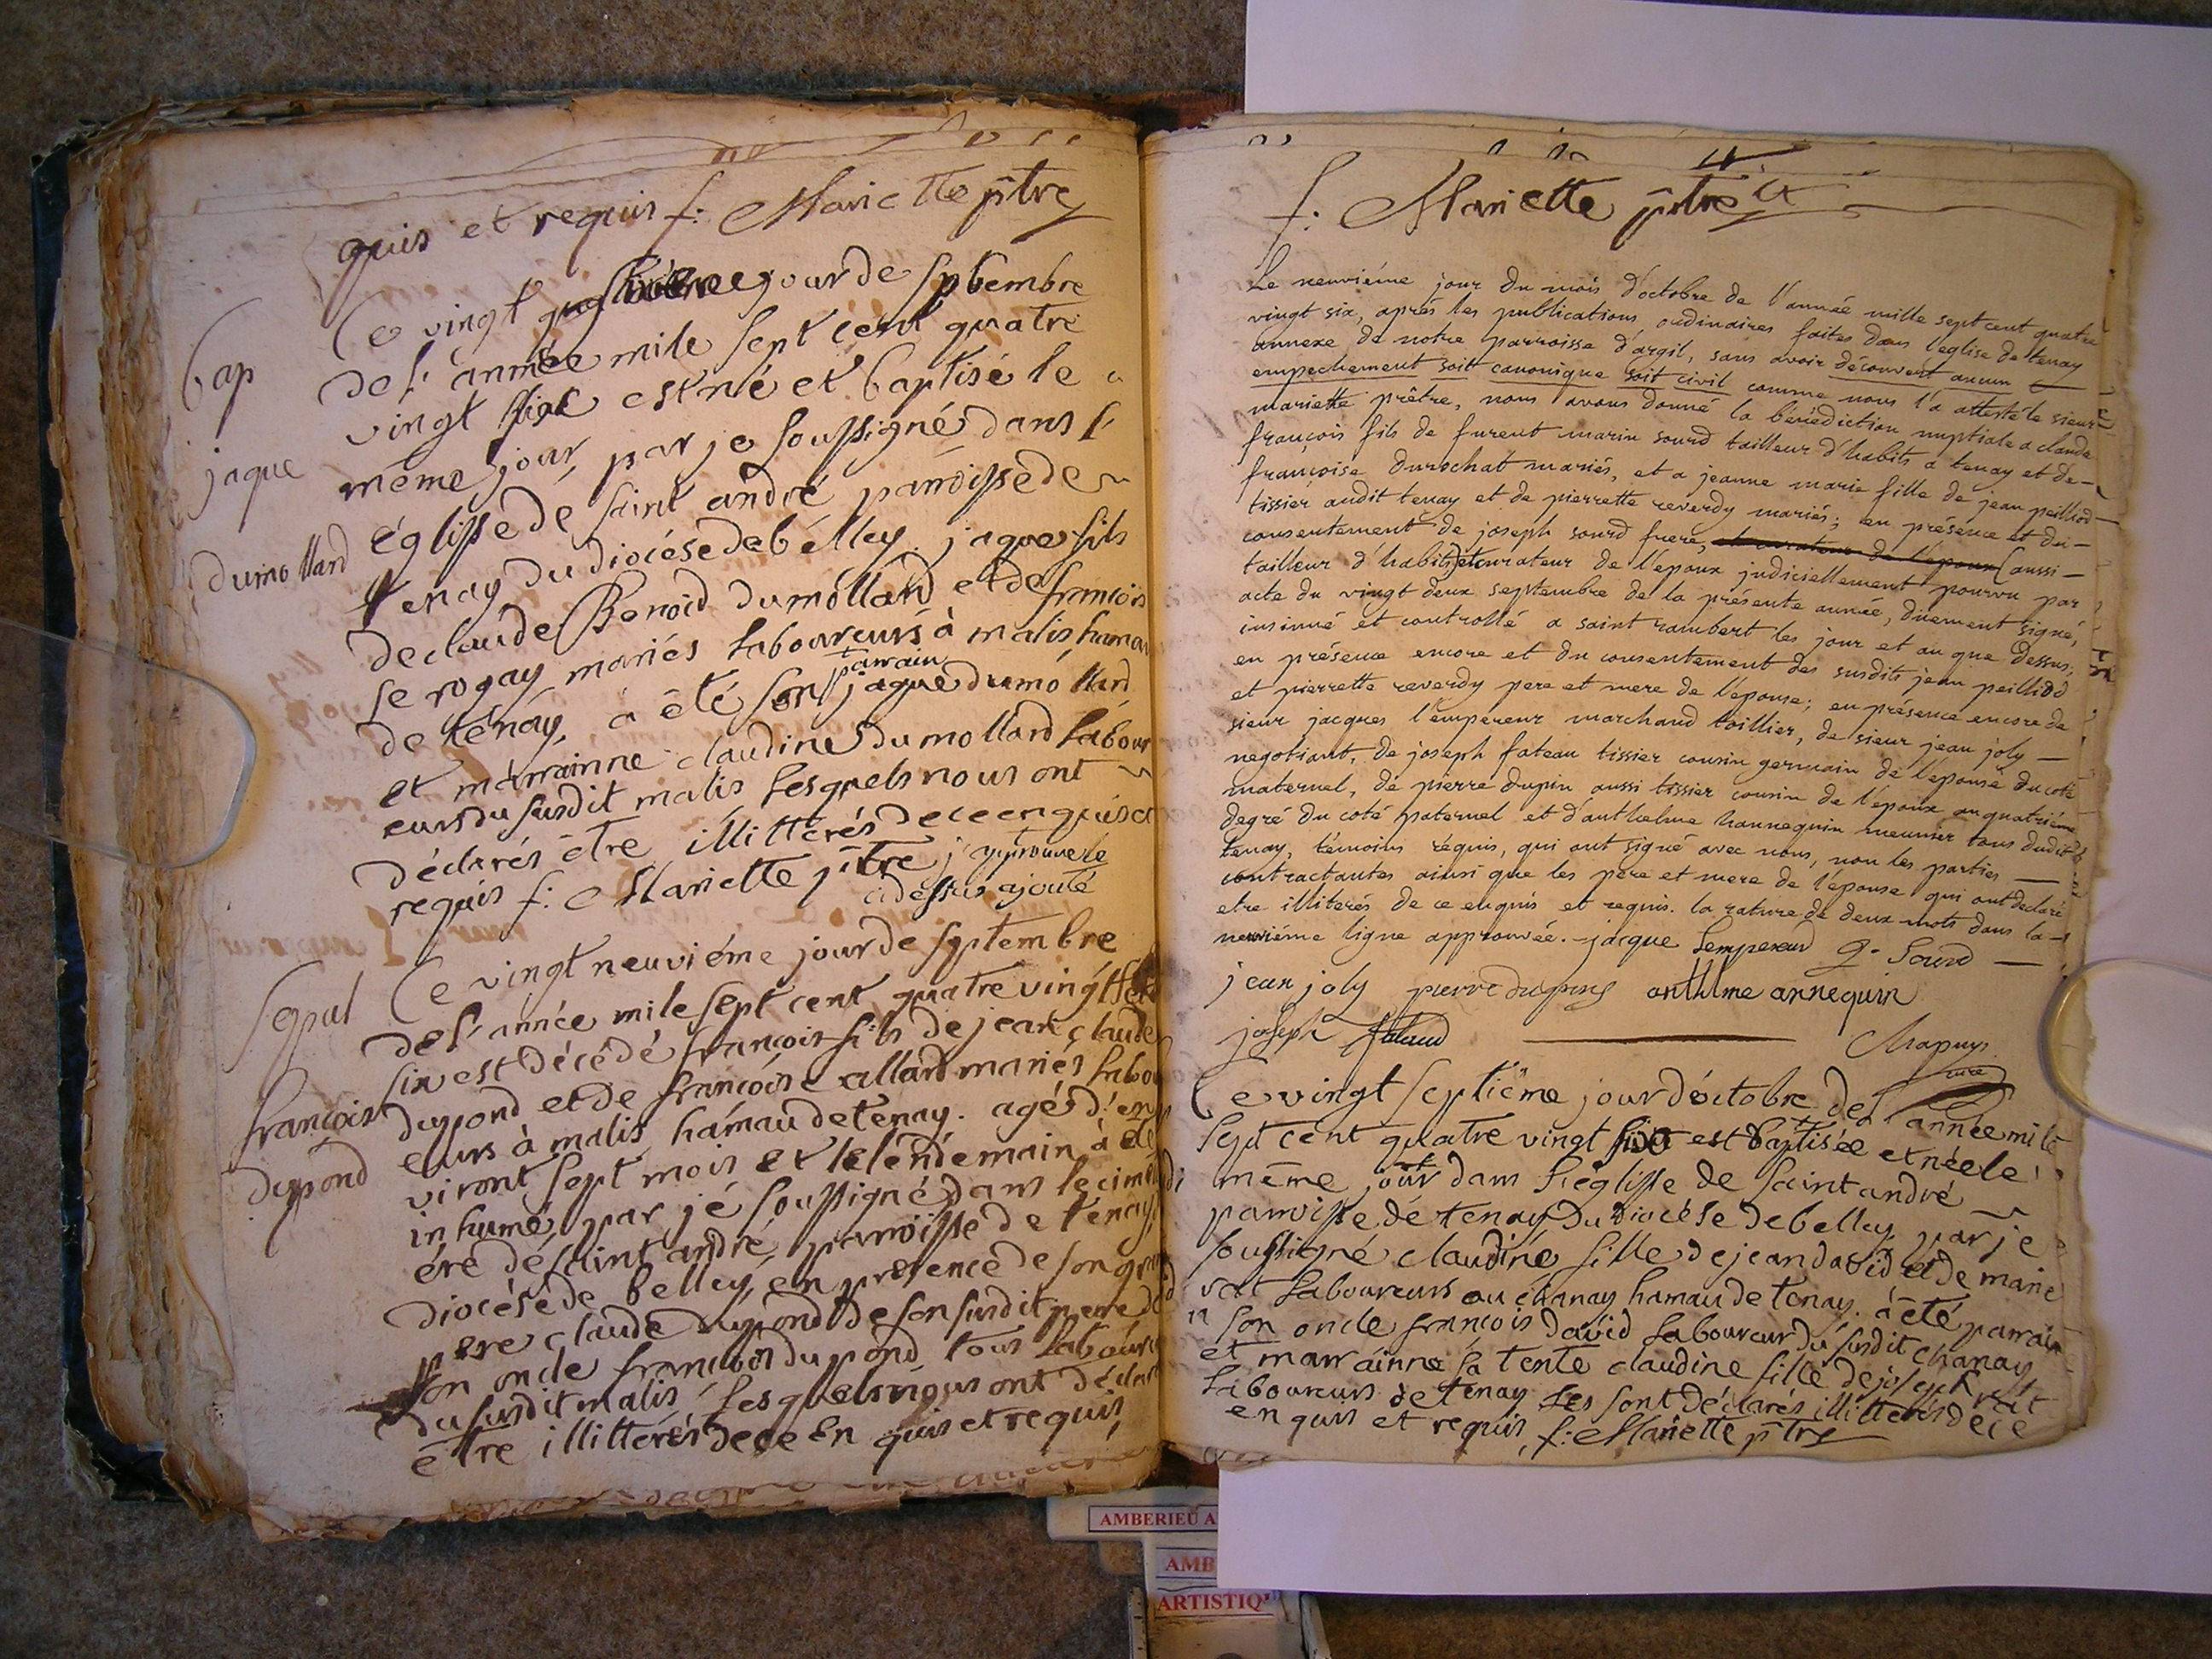 quis et requis f: Mariette p̄tre
Le vingt jour de Spbembre
bap
de l'année mile sept cent quatre
vingt six est né et baptisé le
jaque
même jour, par je soussigné dans l'
églisse de saint andré parroisse de
dumollard
tenay du diocése de bélley. jaque fils
de claude Benoid dumollard et de francois
se rogay mariés laboureurs à malis hamau
de ténay, a été son parrain jaque dumollard
et marrainne claudine dumollard labour
eurs du susdit malis lesquels nous ont
déclarés être illitterés de ce enquis et
requis f: Mariette p̄tre j'approuve le
cidessus ajouté
Le vingt neuviéme jour de Sptembre
sepul
de l'année mile sept cent quatre vingt
six est décédé francois fils de jean claude
françois
dupond et de francoise allard mariés labou
dupond
eurs à malis hamau de tenay. agé d'en
viront sept mois et le lendemain à été
inhumé par je soussigné dans le cimeti
ére de saint andré parroisse de ténay
diocése de belley, en presence de son grand
pere claude dupond de son susdit pere
son oncle francois dupond tous laboure
du susdit malis lesquels nous ont déclaré
être illitterés de ce en quis et requis
f: Mariette p̄tre
Le neuviéme jour du mois d'octobre de l'année mille sept cent quatre
vingt six, aprés les publications ordinaires faites dans l'eglise de tenay
annexe de notre parroisse d'argil, sans avoir découvert aucun
empechement soit canonique soit civil comme nous l'a attesté le sieur
mariette prêtre, nous avons donné la bénédiction nuptiale a claude
françois fils de furent marin sourd tailleur d'habits a tenay et de
françoise durochat mariés, et a jeanne marie fille de jean peilliod
tissier audit tenay et de pierrette reverdy mariés; en présence et du
consentement de joseph sourd frere, et curateur de l'epoux (aussi
tailleur d'habits) et curateur de l'epoux judiciellement pourvu par
acte du vingt deux septembre de la présente année, duement signé,
insinué et controllé a saint rambert les jour et an que dessus,
en présence encore et du consentement des susdits jean peilliod
et pierrette reverdy pere et mere de l'epouse; en présence encore de
sieur jacques l'empereur marchand toillier, de sieur jean joly
negotiant, de joseph fateau tissier cousin germain de l'epouse du coté
maternel, de pierre dupin aussi tissier cousin de l'epoux au quatriéme
degré du coté paternel et d'anthelme hannequin meunier tous dudit
tenay, témoins réquis, qui ont signé avec nous, non les parties
contractantes ainsi que les pere et mere de l'épouse qui ont declaré
etre illiterés de ce enquis et requis. la rature de deux mots dans la
neuviéme ligne approuvée. jacque Lempereur J. Sourd
jean joly pierre duping anthlme annequin
joseph fataud
Chapuys
curé
Le vingt septiême jour d'octobre de l'année mile
sept cent quatre vingt six est baptisée et née le
même jour dans l'église de saint andré
parroisse de tenay du diocése de belley par je
soussigné claudine fille de jean david et de marie
vat laboureurs au chanay hamau de tenay. à été parrain
son oncle francois david laboureur du susdit chanay
et marrainne sa tente claudine fille de joseph vat
laboureurs de tenay les sont déclarés illitterés de ce
enquis et requis, f: Mariette p̄tre
AMBERIEU A
AMB
ARTISTIQ